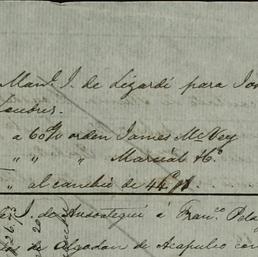 Man.l J. de Lizardi para Jo
Londres.
a 60 d/v orden James McVey
" " " Marcial &Co.
" al cambio de 44
J. de Ansoategui á Fran.co Pela
de Algodon de Acapulco con